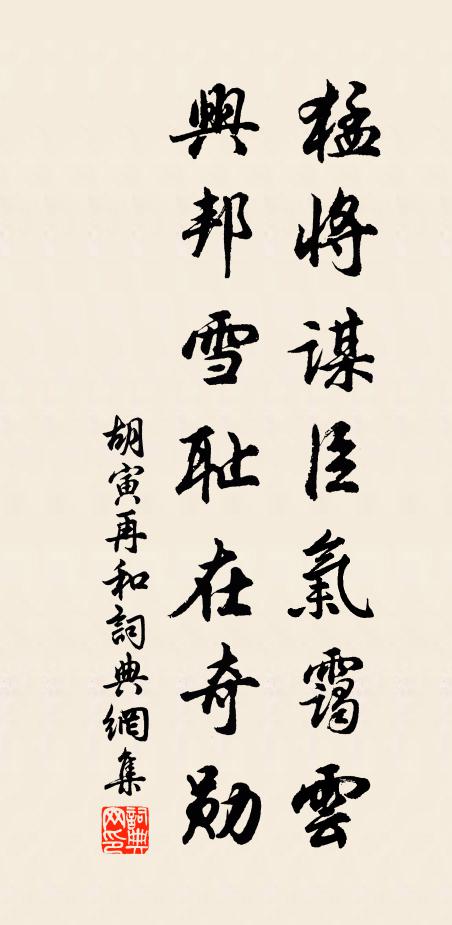 猛將謀臣氣靄雲
興邦雪耻在奇勛
胡寅再和詞典網集
詞典網印